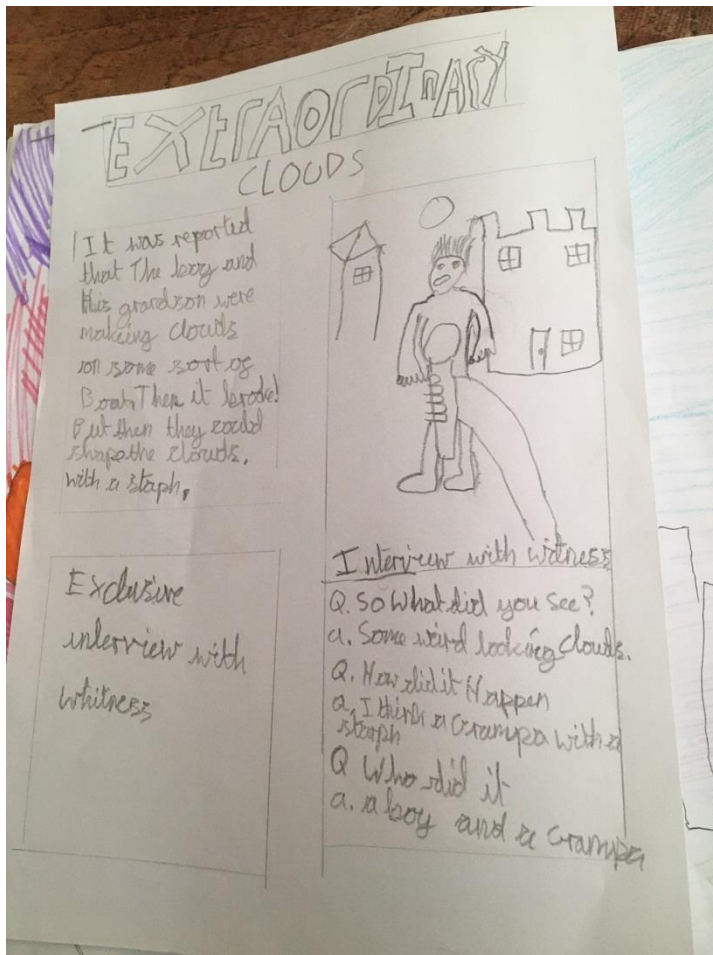 EXtrAOrDInARY
CLOUDS
It was reported
that The boy and
this grandson were
making clouds
on some sort of
Boat, Then it broke!
But then they could
shape the clouds.
with a staph.
Exclusive
interview with
whitness
Interview with witness
Q. So What did you see?
a. Some weird looking clouds.
Q. How did it Happen
a. I think a Grampa with a
staph
Q Who did it
a. a boy and a Grampa